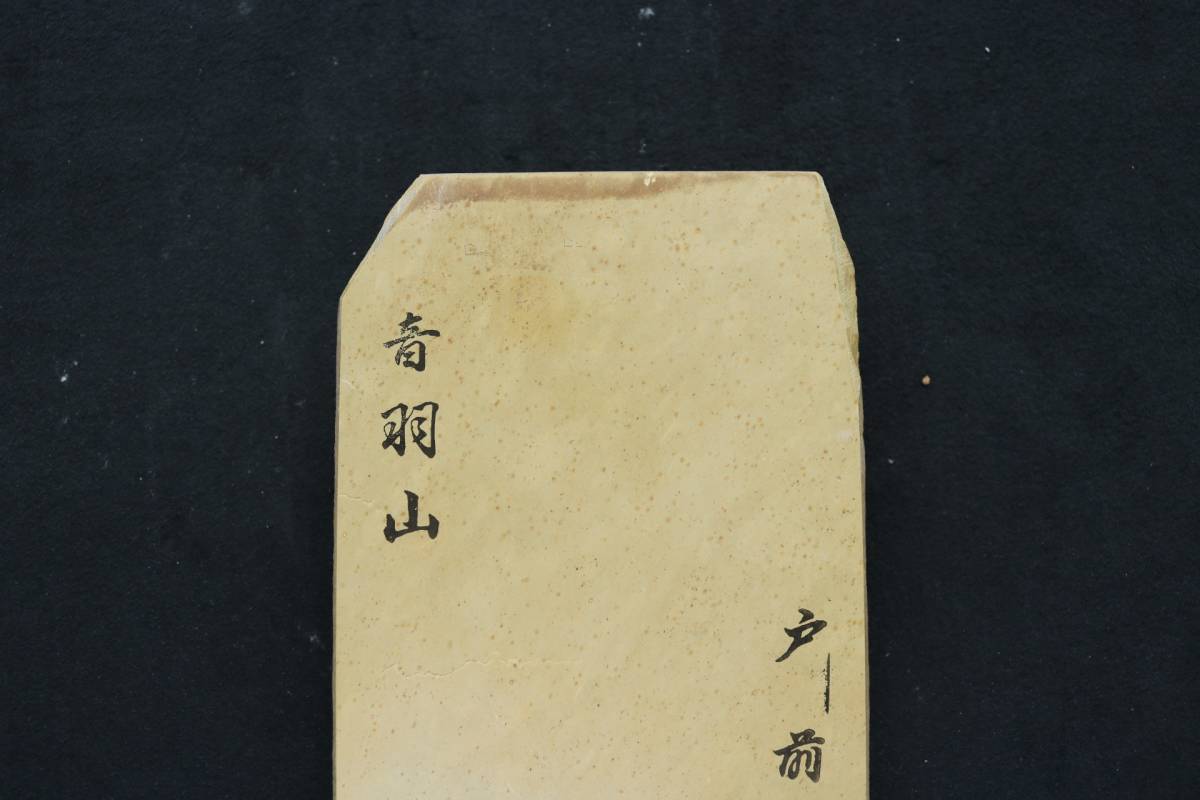 音羽山
戸前